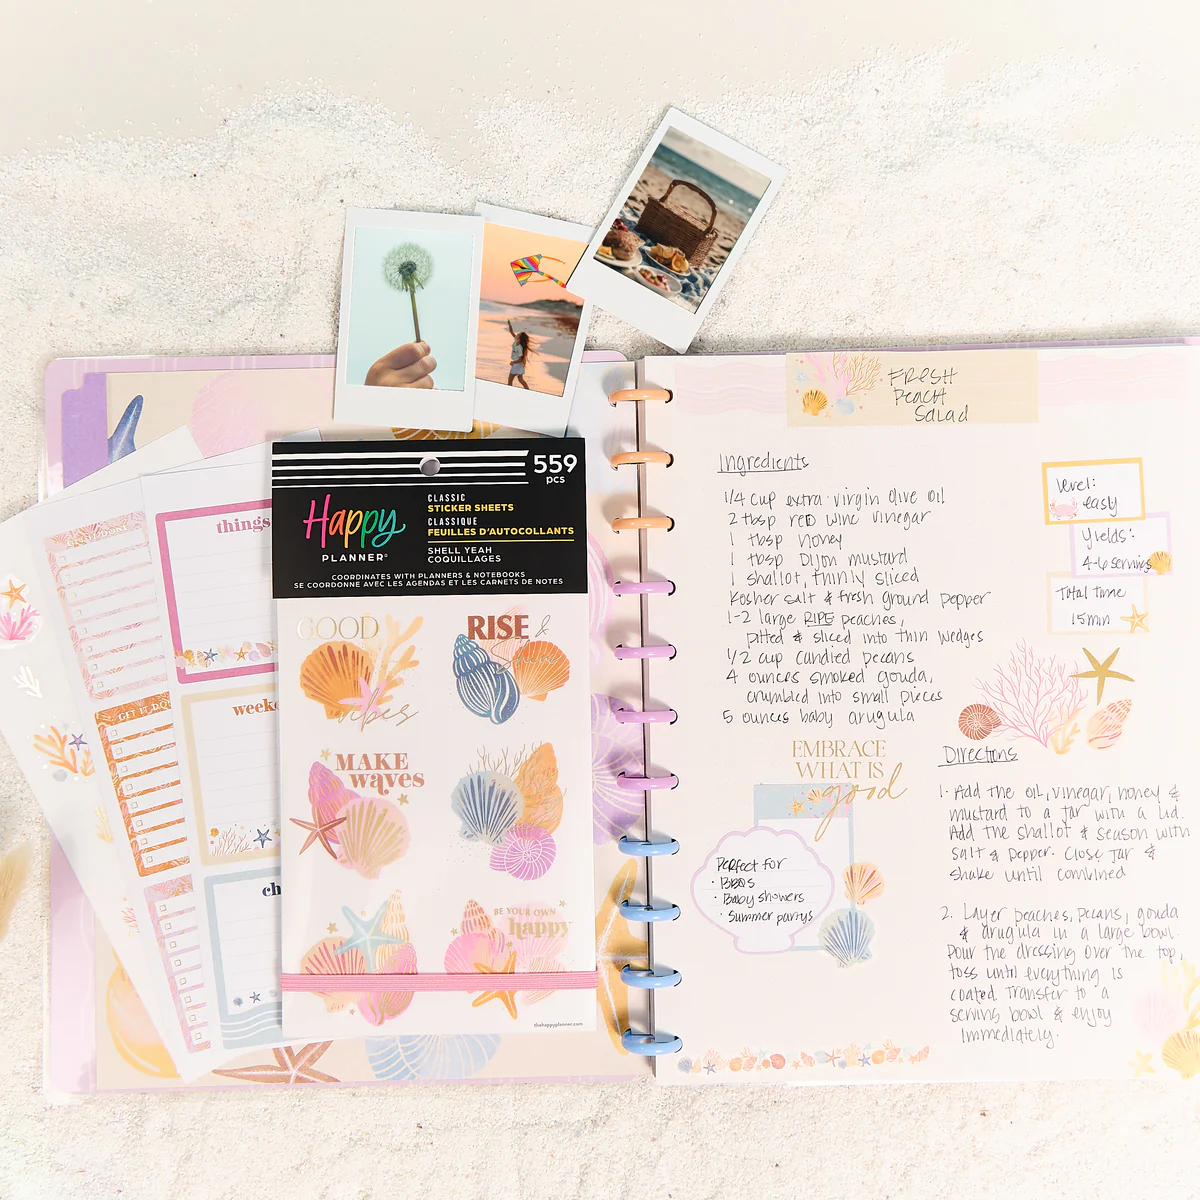 559
pcs
Happy
PLANNER®
CLASSIC
STICKER SHEETS
CLASSIQUE
FEUILLES D'AUTOCOLLANTS
SHELL YEAH
COQUILLAGES
COORDINATES WITH PLANNERS & NOTEBOOKS
SE COORDONNE AVEC LES AGENDAS ET LES CARNETS DE NOTES
GOOD
vibes
RISE &
Shine
MAKE
waves
BE YOUR OWN
happy
thehappyplanner.com
things
GET IT DO
week
ch
FRESH
Peach
Salad
Ingredients
1/4 cup extra virgin olive oil
2 tbsp red wine vinegar
1 tbsp honey
1 tbsp Dijon mustard
1 shallot, thinly sliced
Kosher salt & fresh ground pepper
1-2 large RIPE peaches,
pitted & sliced into thin wedges
1/2 cup candied pecans
4 ounces smoked gouda,
crumbled into small pieces
5 ounces baby arugula
level:
easy
Yields:
4-6 servings
Total Time
15 min
EMBRACE
WHAT IS
good
Perfect for
· BBQs
· Baby showers
· Summer partys
Directions
1. Add the oil, vinegar, honey &
mustard to a jar with a lid.
Add the shallot & season with
salt & pepper. Close jar &
shake until combined
2. Layer peaches, pecans, gouda
& arugula in a large bowl.
Pour the dressing over the top,
toss until everything is
coated. Transfer to a
serving bowl & enjoy
immediately.